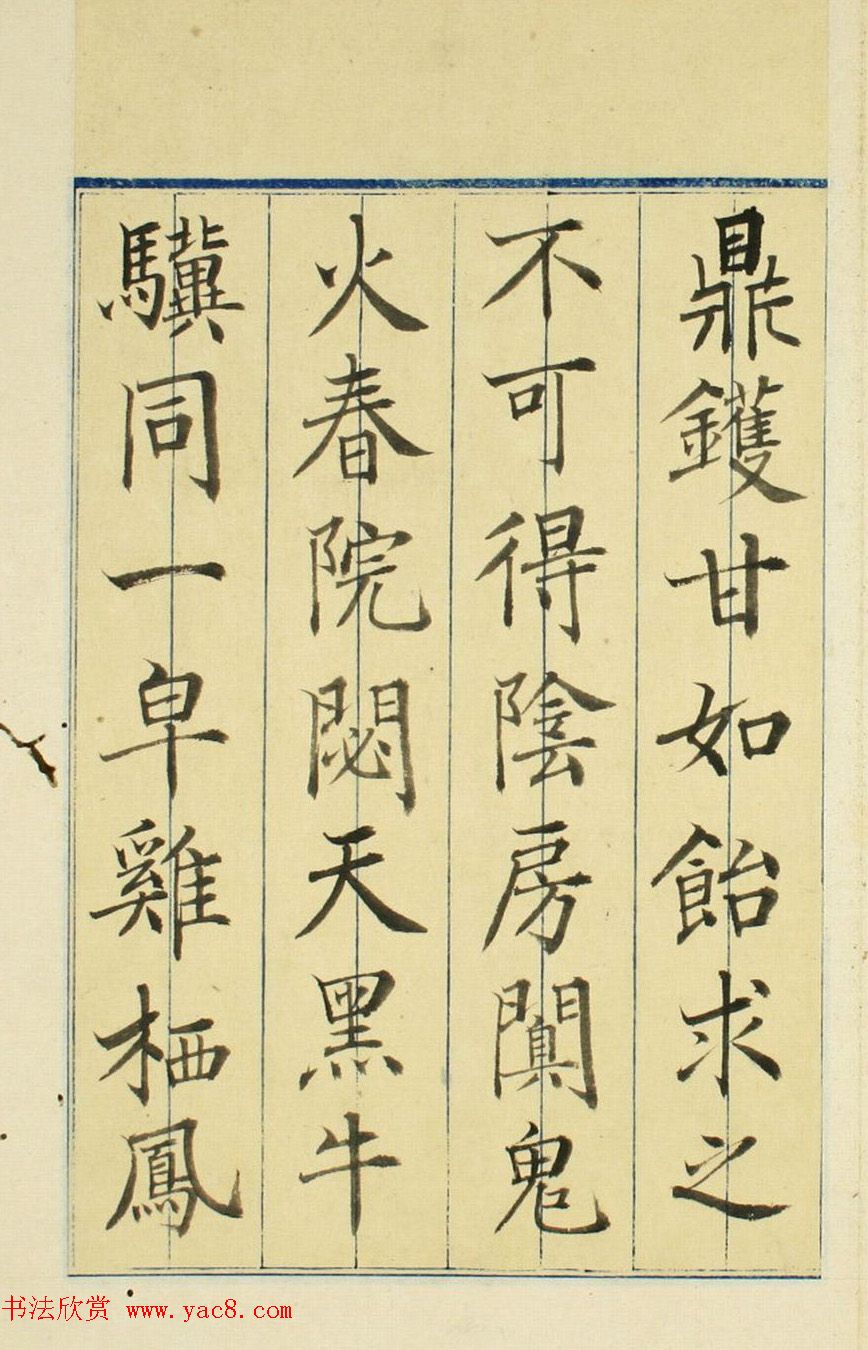 鼎鑊甘如飴求之
不可得陰房闃鬼
火春院閟天黑牛
驥同一皁雞栖鳳
书法欣赏 www.yac8.com